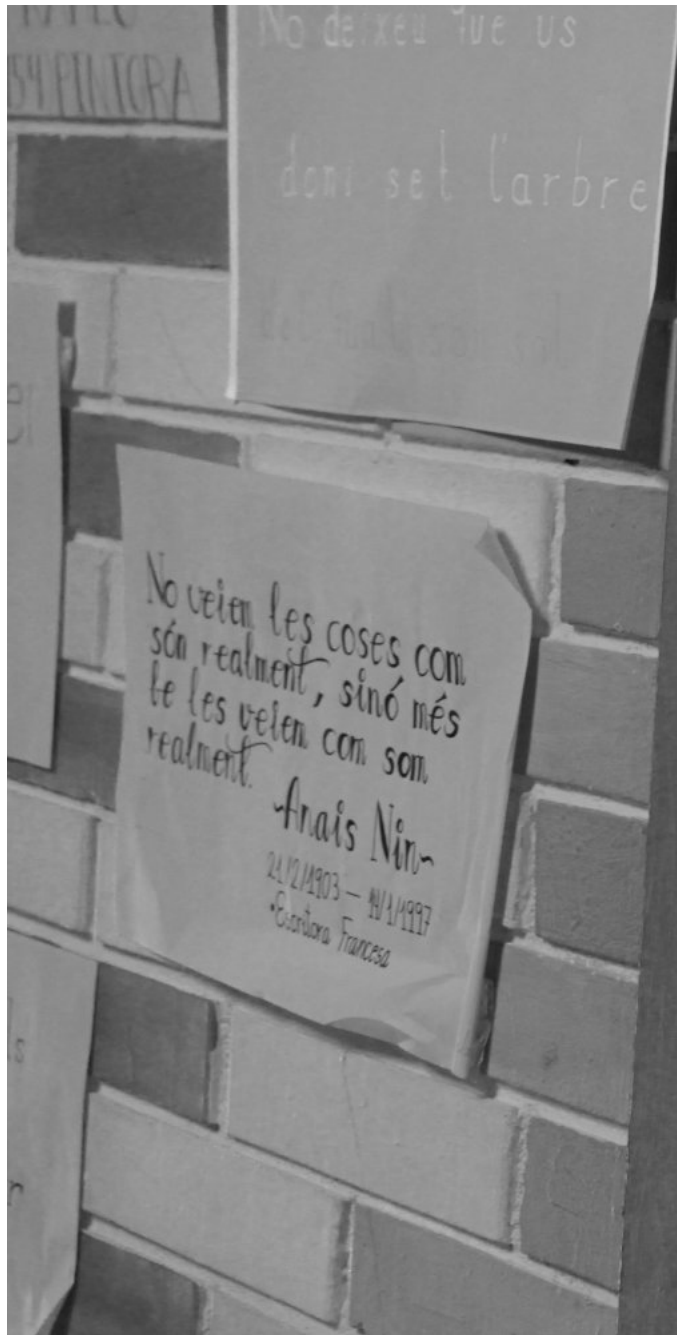 54 PINTORA
No deixeu que us
doni set l'arbre
No veiem les coses com
són realment, sinó més
be les veiem com som
realment.
~Anais Nin~
21/2/1903 – 14/1/1997
*Escritora Francesa